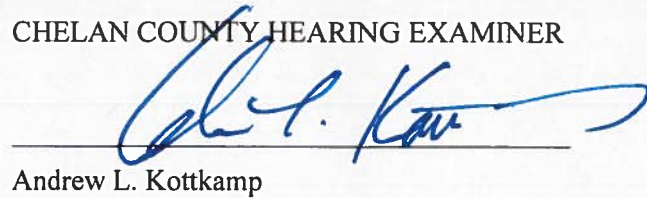 CHELAN COUNTY HEARING EXAMINER
Andrew L. Kottkamp